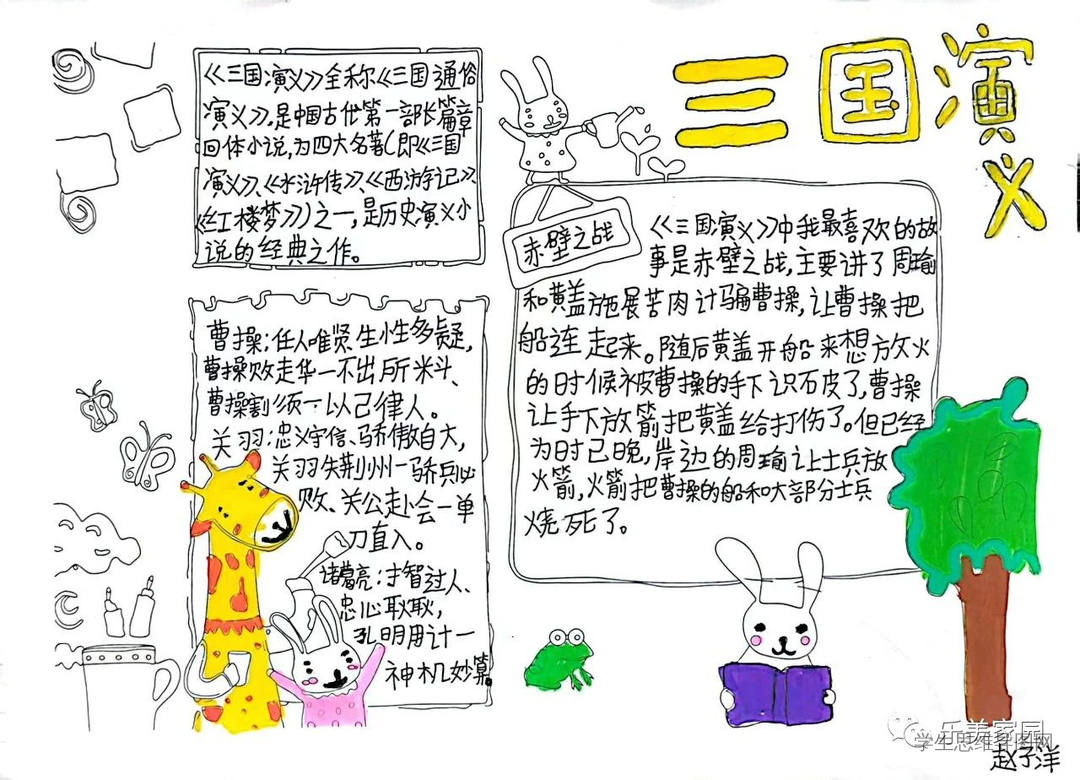 三国演义
《三国演义》全称《三国通俗
演义》,是中国古代第一部长篇章
回体小说,为四大名著(即《三国
演义》、《水浒传》、《西游记》、
《红楼梦》)之一,是历史演义小
说的经典之作。
曹操:任人唯贤、生性多疑,
曹操败走华一不出所料、
曹操割须一以己律人。
关羽:忠义守信、骄傲自大,
关羽失荆州一骄兵必
败、关公赴会一单
刀直入。
诸葛亮:才智过人、
忠心耿耿,
孔明用计一
神机妙算。
赤壁之战
《三国演义》中我最喜欢的故
事是赤壁之战,主要讲了周瑜
和黄盖施展苦肉计骗曹操,让曹操把
船连起来。随后黄盖开船来想放火
的时候被曹操的手下识破了,曹操
让手下放箭把黄盖给打伤了。但已经
为时已晚,岸边的周瑜让士兵放
火箭,火箭把曹操的船和大部分士兵
烧死了。
乐美家园
学生思维导图网
赵子洋